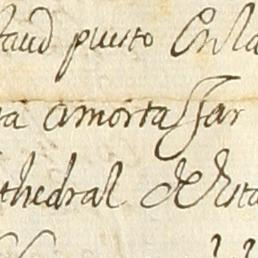 taud puesto Enla
ra amortassar
thedral de esta